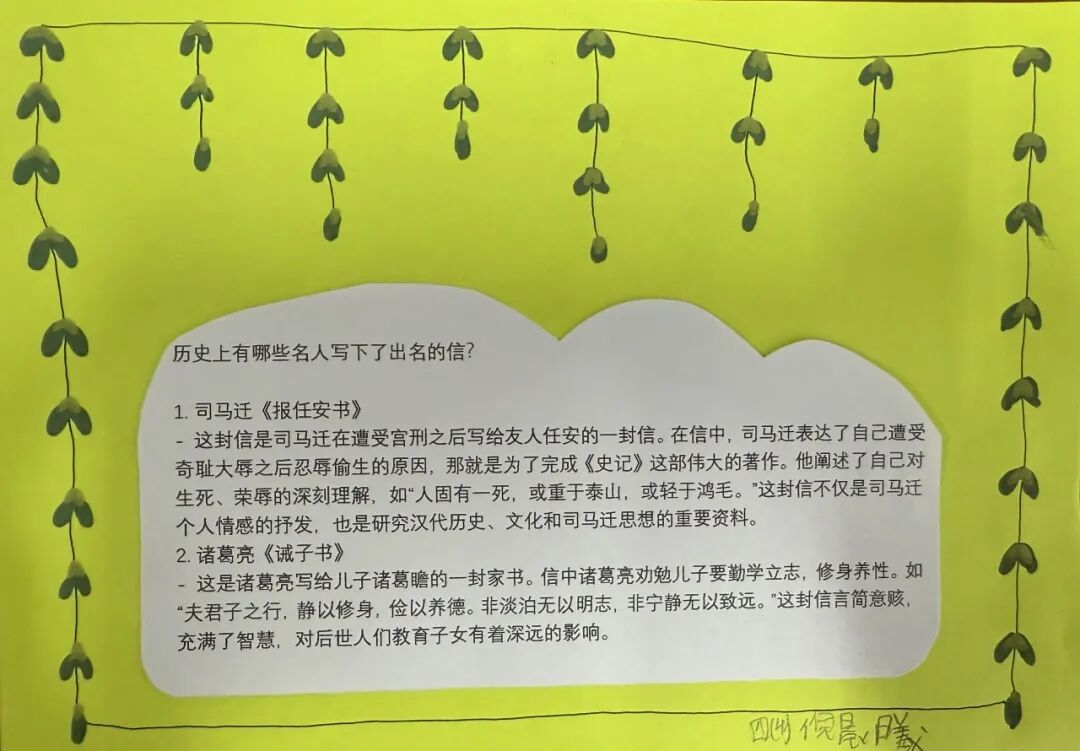 历史上有哪些名人写下了出名的信?
1. 司马迁《报任安书》
- 这封信是司马迁在遭受宫刑之后写给友人任安的一封信。在信中，司马迁表达了自己遭受
奇耻大辱之后忍辱偷生的原因，那就是为了完成《史记》这部伟大的著作。他阐述了自己对
生死、荣辱的深刻理解，如“人固有一死，或重于泰山，或轻于鸿毛。”这封信不仅是司马迁
个人情感的抒发，也是研究汉代历史、文化和司马迁思想的重要资料。
2. 诸葛亮《诫子书》
- 这是诸葛亮写给儿子诸葛瞻的一封家书。信中诸葛亮劝勉儿子要勤学立志，修身养性。如
“夫君子之行，静以修身，俭以养德。非淡泊无以明志，非宁静无以致远。”这封信言简意赅，
充满了智慧，对后世人们教育子女有着深远的影响。